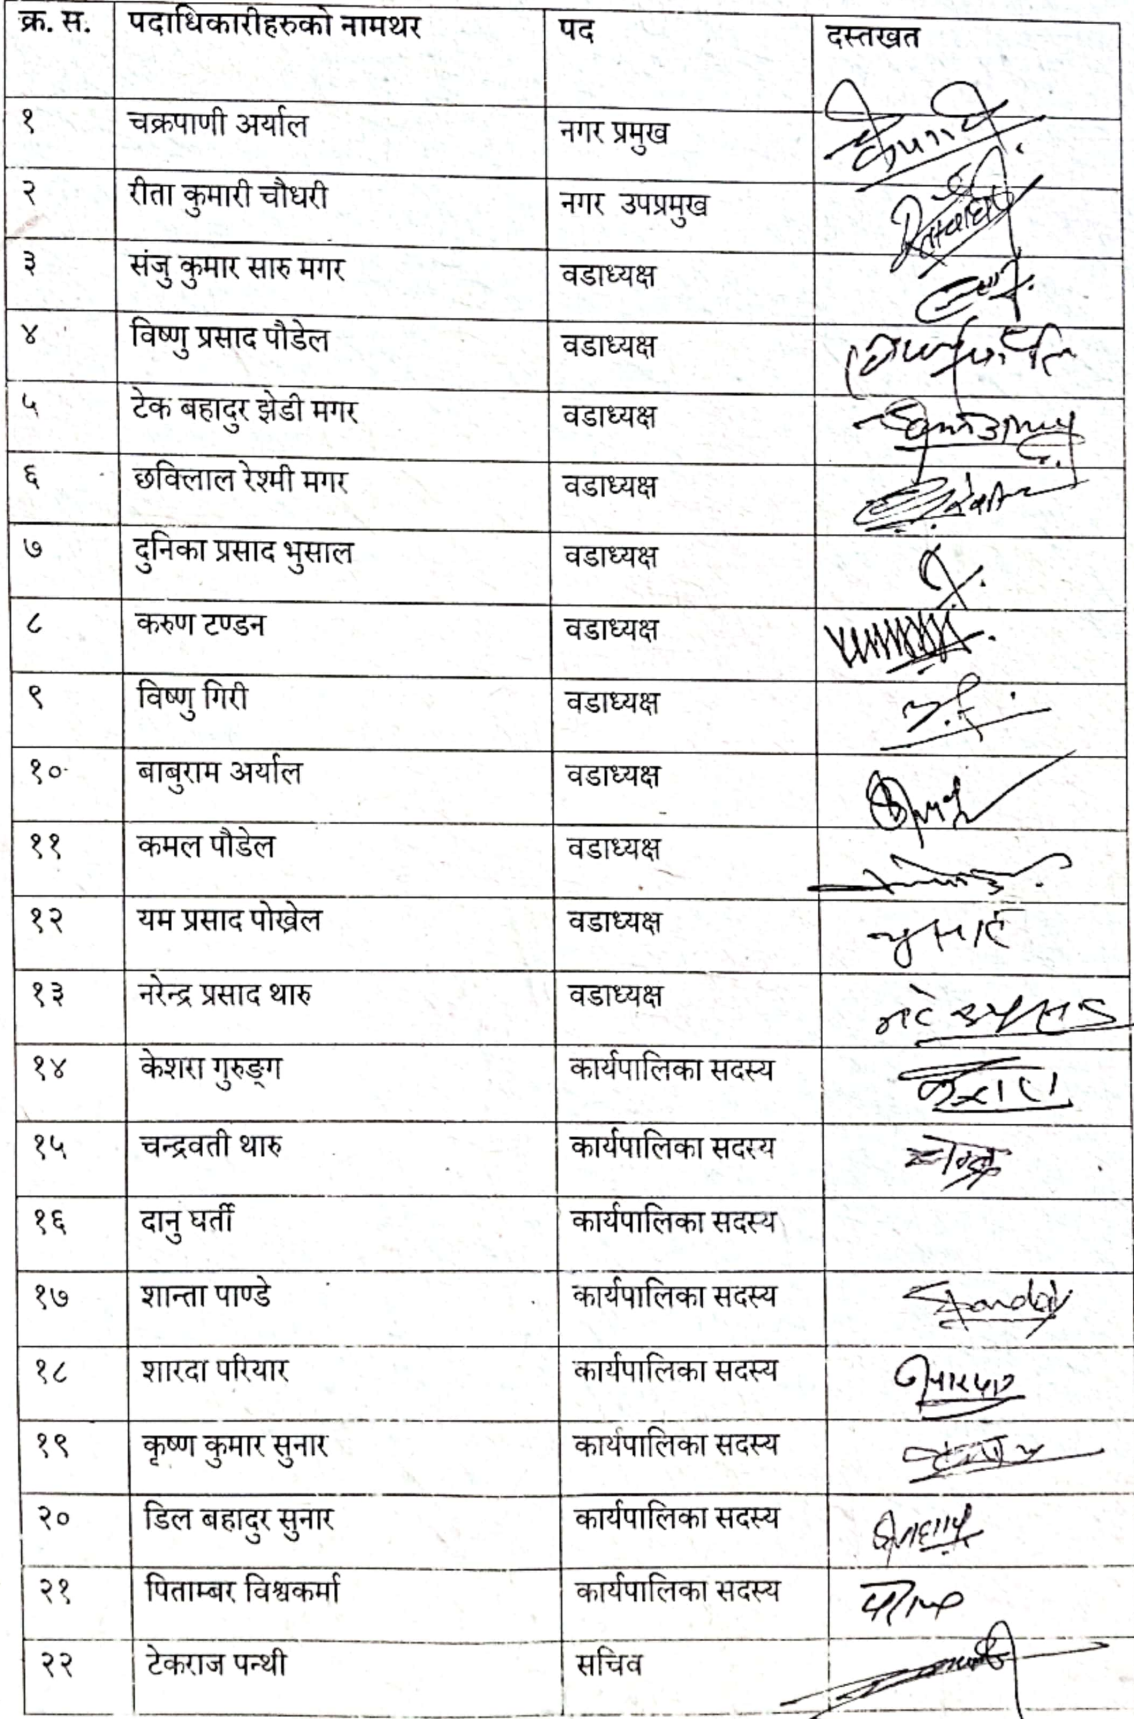 क्र. स. पदाधिकारीहरुको नामथर पद दस्तखत
१ चक्रपाणी अर्याल नगर प्रमुख
२ रीता कुमारी चौधरी नगर उपप्रमुख
३ संजु कुमार सारु मगर वडाध्यक्ष
४ विष्णु प्रसाद पौडेल वडाध्यक्ष
५ टेक बहादुर झेडी मगर वडाध्यक्ष
६ छविलाल रेश्मी मगर वडाध्यक्ष
७ दुनिका प्रसाद भुसाल वडाध्यक्ष
८ करुण टण्डन वडाध्यक्ष
९ विष्णु गिरी वडाध्यक्ष
१० बाबुराम अर्याल वडाध्यक्ष
११ कमल पौडेल वडाध्यक्ष
१२ यम प्रसाद पोख्रेल वडाध्यक्ष
१३ नरेन्द्र प्रसाद थारु वडाध्यक्ष
१४ केशरा गुरुङ्ग कार्यपालिका सदस्य
१५ चन्द्रवती थारु कार्यपालिका सदस्य
१६ दानु घर्ती कार्यपालिका सदस्य
१७ शान्ता पाण्डे कार्यपालिका सदस्य
१८ शारदा परियार कार्यपालिका सदस्य
१९ कृष्ण कुमार सुनार कार्यपालिका सदस्य
२० डिल बहादुर सुनार कार्यपालिका सदस्य
२१ पिताम्बर विश्वकर्मा कार्यपालिका सदस्य
२२ टेकराज पन्थी सचिव